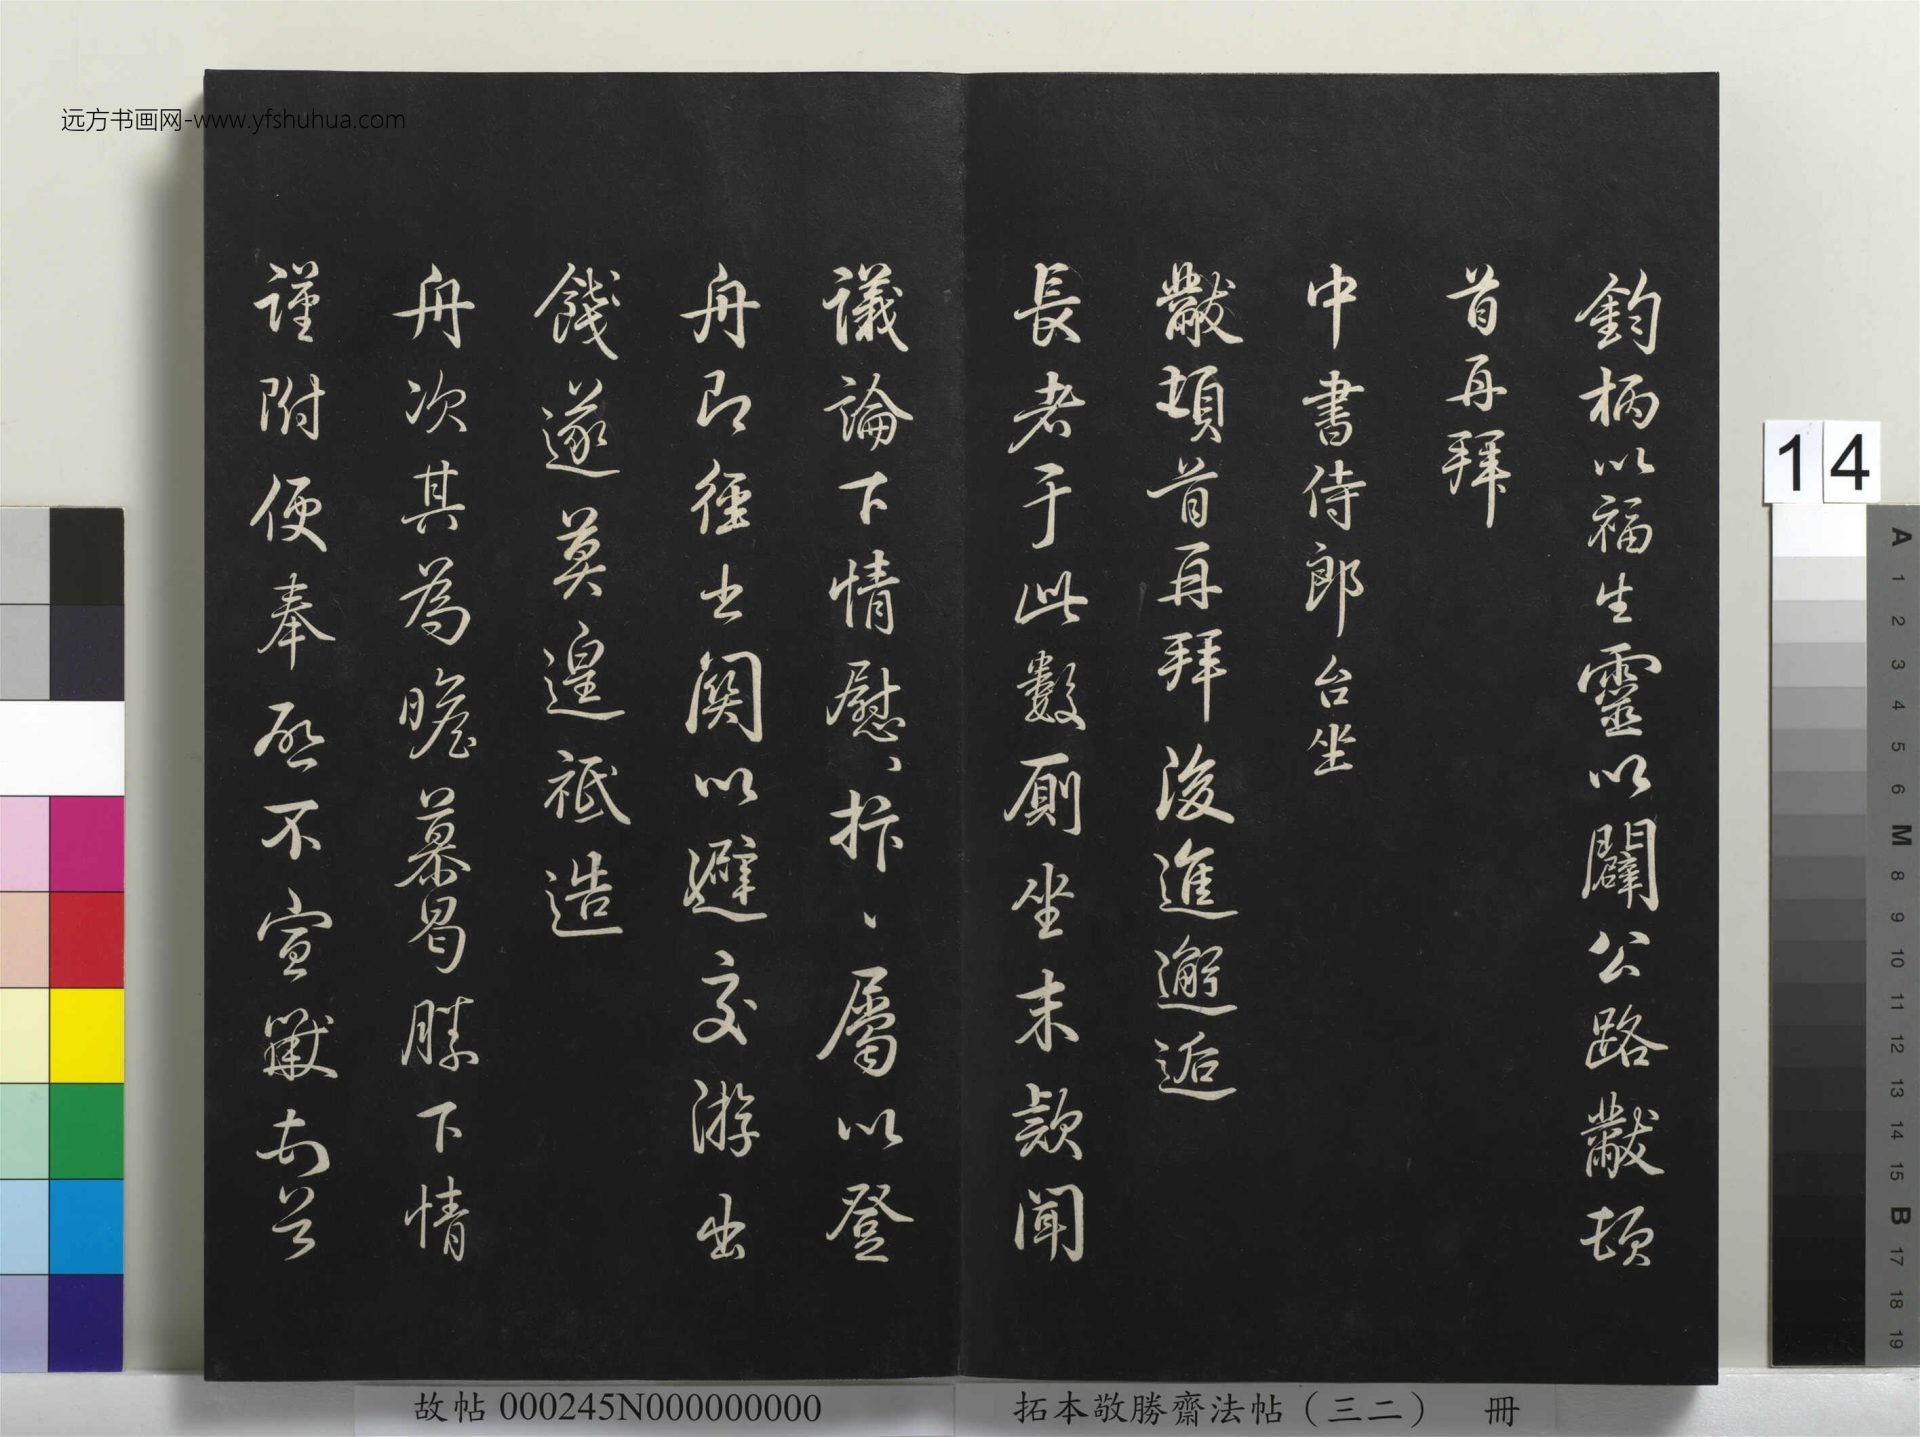 远方书画网-www.yfshuhua.com
鈞柄以福生靈以闢公路黻頓
首再拜
中書侍郎台坐
黻頓首再拜後進邂逅
長者于此數厠坐末款聞
議論下情慰、抃、屬以登
舟即徑出關以避交游出
餞遂莫遑祗造
舟次其為瞻慕曷勝下情
謹附便奉啟不宣黻
14
A 1 2 3 4 5 6 M 8 9 10 11 12 13 14 15 B 17 18 19
故帖 000245N000000000
拓本敬勝齋法帖（三二） 冊